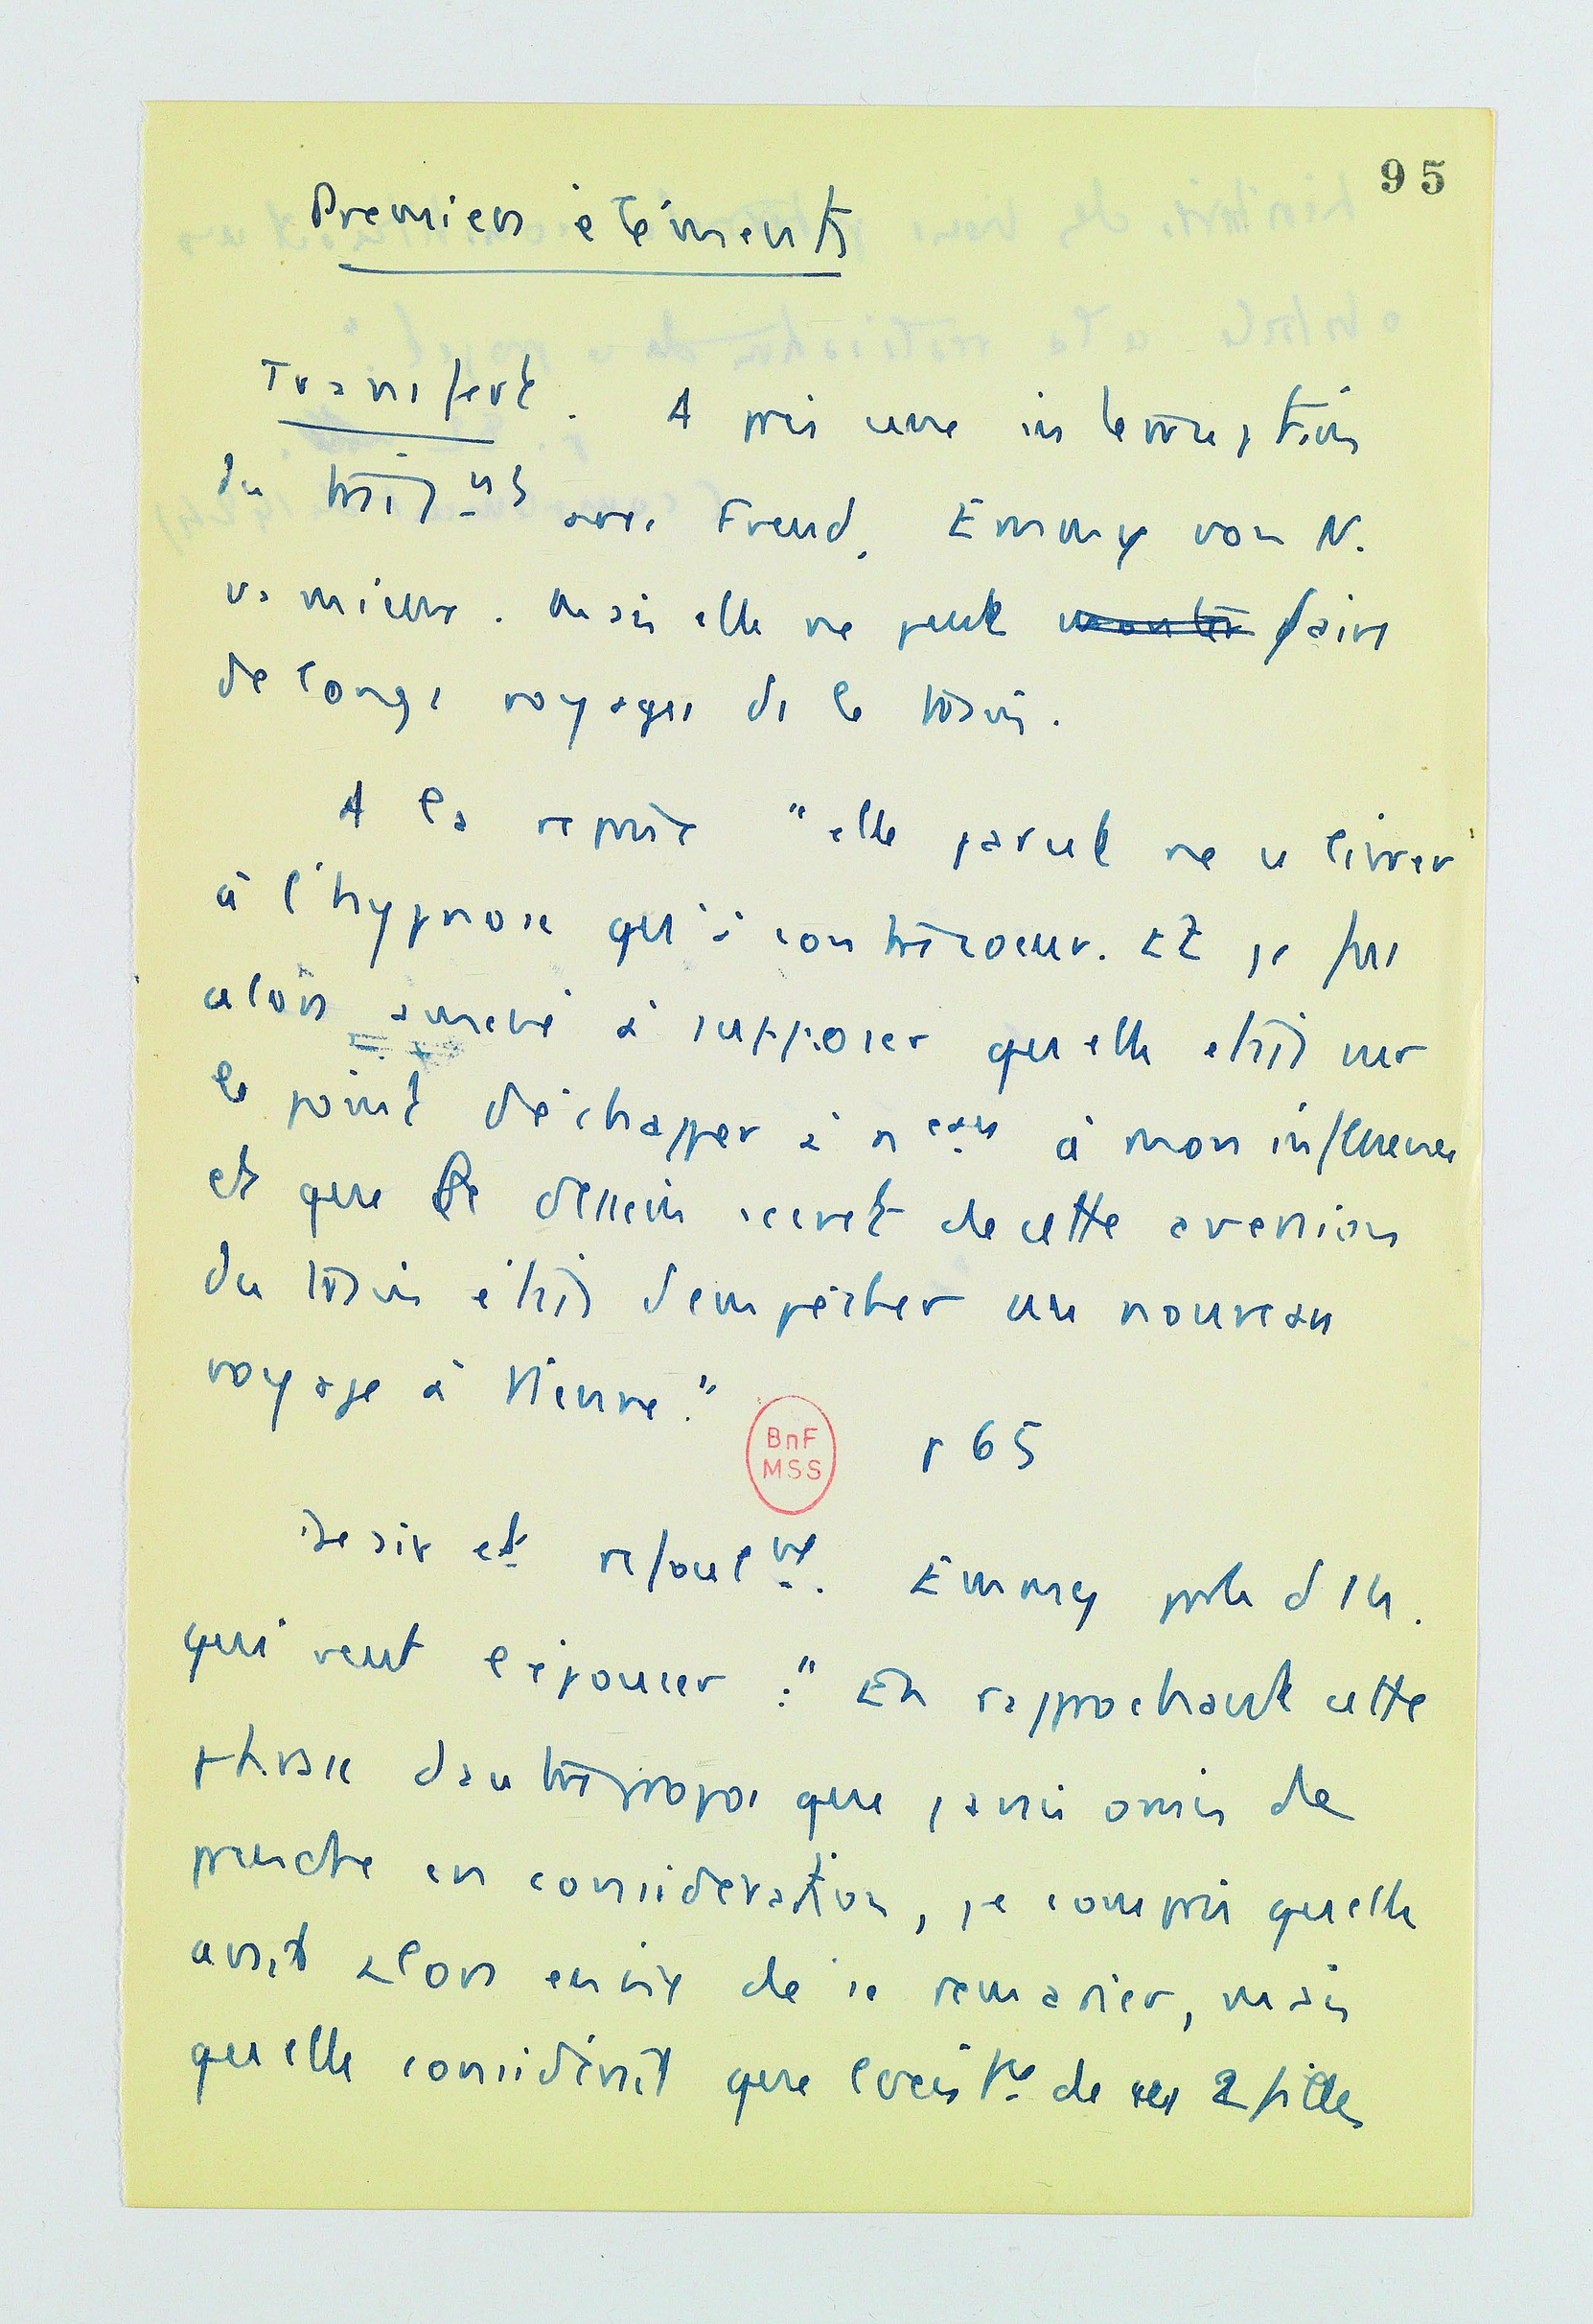 95
Premiers éléments
Transfert. Après une interruption
du traitmt avec Freud, Emmy von N.
va mieux. Mais elle ne peut monter faire
de longs voyages ds le train.
A la reprise "elle parut ne se livrer
à l'hypnose qu'à contrecoeur. Et je fus
alors amené à supposer qu'elle était sur
le point d'échapper à neau à mon influence
et que le dessein secret de cette aversion
du train était d'empêcher un nouveau
voyage à Vienne."
BnF
MSS
p 65
Desir et refoulmt. Emmy parle d'1 h.
qui veut l'épouser : "En rapprochant cette
phrase d'autres propos que j'avais omis de
prendre en consideration, je compris qu'elle
avait alors envie de se remarier, mais
qu'elle considérait que l'existce de ses 2 filles